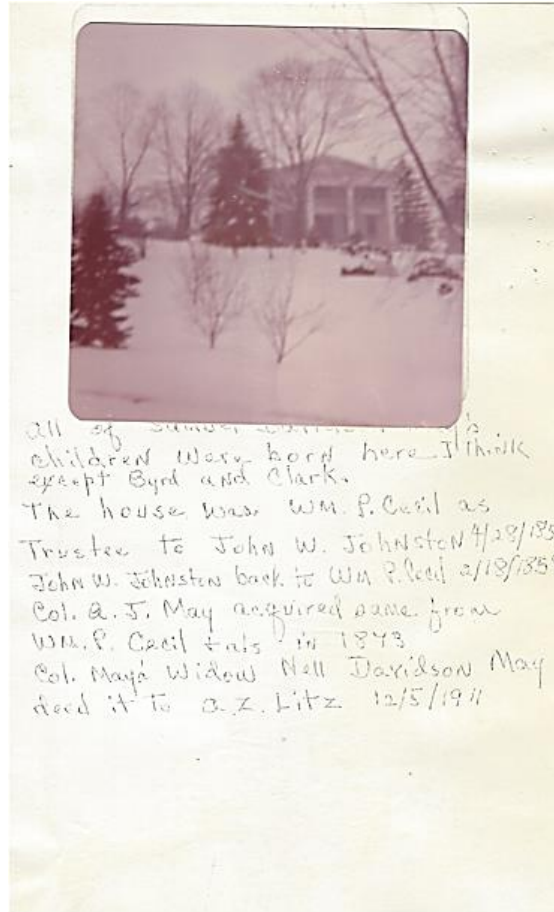 all of
children were born here I think
except Byrd and Clark.
The house was WM. P. Cecil as
Trustee to John W. Johnston 4/28/185
John W. Johnston back to WM P. Cecil 2/18/185
Col. A. J. May acquired same from
WM. P. Cecil in 1873
Col. May's Widow Nell Davidson May
deed it to A. Z. Litz 12/5/1911